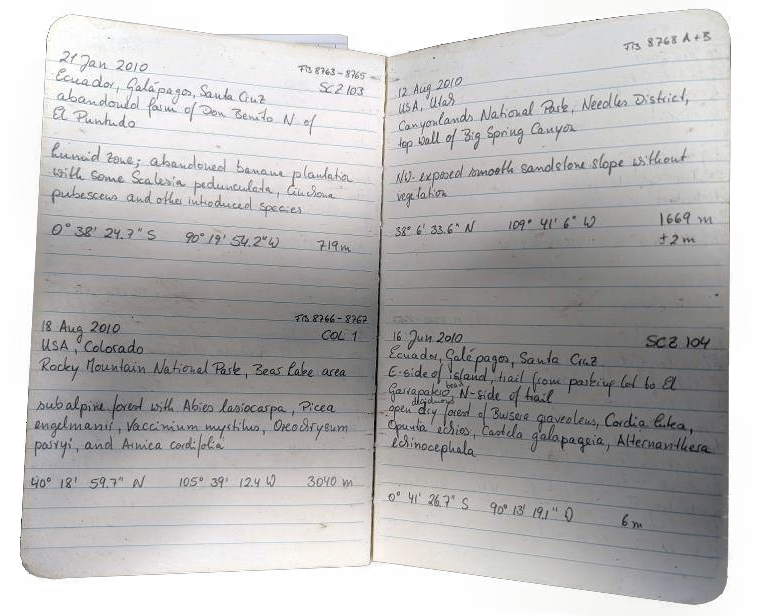 21 Jan 2010 FB 8763-8765
Ecuador, Galápagos, Santa Cruz SCZ 103
abandoned farm of Don Benito N of
El Puntudo
humid zone; abandoned banana plantation
with some Scalesia pedunculata, Cinchona
pubescens and other introduced species
0° 38' 24.7" S 90° 19' 54.2" W 719 m
FB 8766-8767
18 Aug 2010 COL 1
USA, Colorado
Rocky Mountain National Park, Bear Lake area
subalpine forest with Abies lasiocarpa, Picea
engelmanii, Vaccinium myrtilus, Oreochrysum
parryi, and Arnica cordifolia
40° 18' 59.7" N 105° 39' 12.4 W 3040 m
FB 8768 A+B
12 Aug 2010
USA, Utah
Canyonlands National Park, Needles District,
top wall of Big Spring Canyon
NW-exposed smooth sandstone slope without
vegetation
38° 6' 33.6" N 109° 41' 6" W 1669 m
±2 m
16 Jun 2010 SCZ 104
Ecuador, Galápagos, Santa Cruz
E-side of island, trail from parking lot to El
Garrapatero beach N-side of trail
deciduous
open dry forest of Bursera graveolens, Cordia lutea,
Opuntia echios, Castela galapageia, Alternanthera
echinocephala
0° 41' 26.7" S 90° 13' 19.1" W 6 m